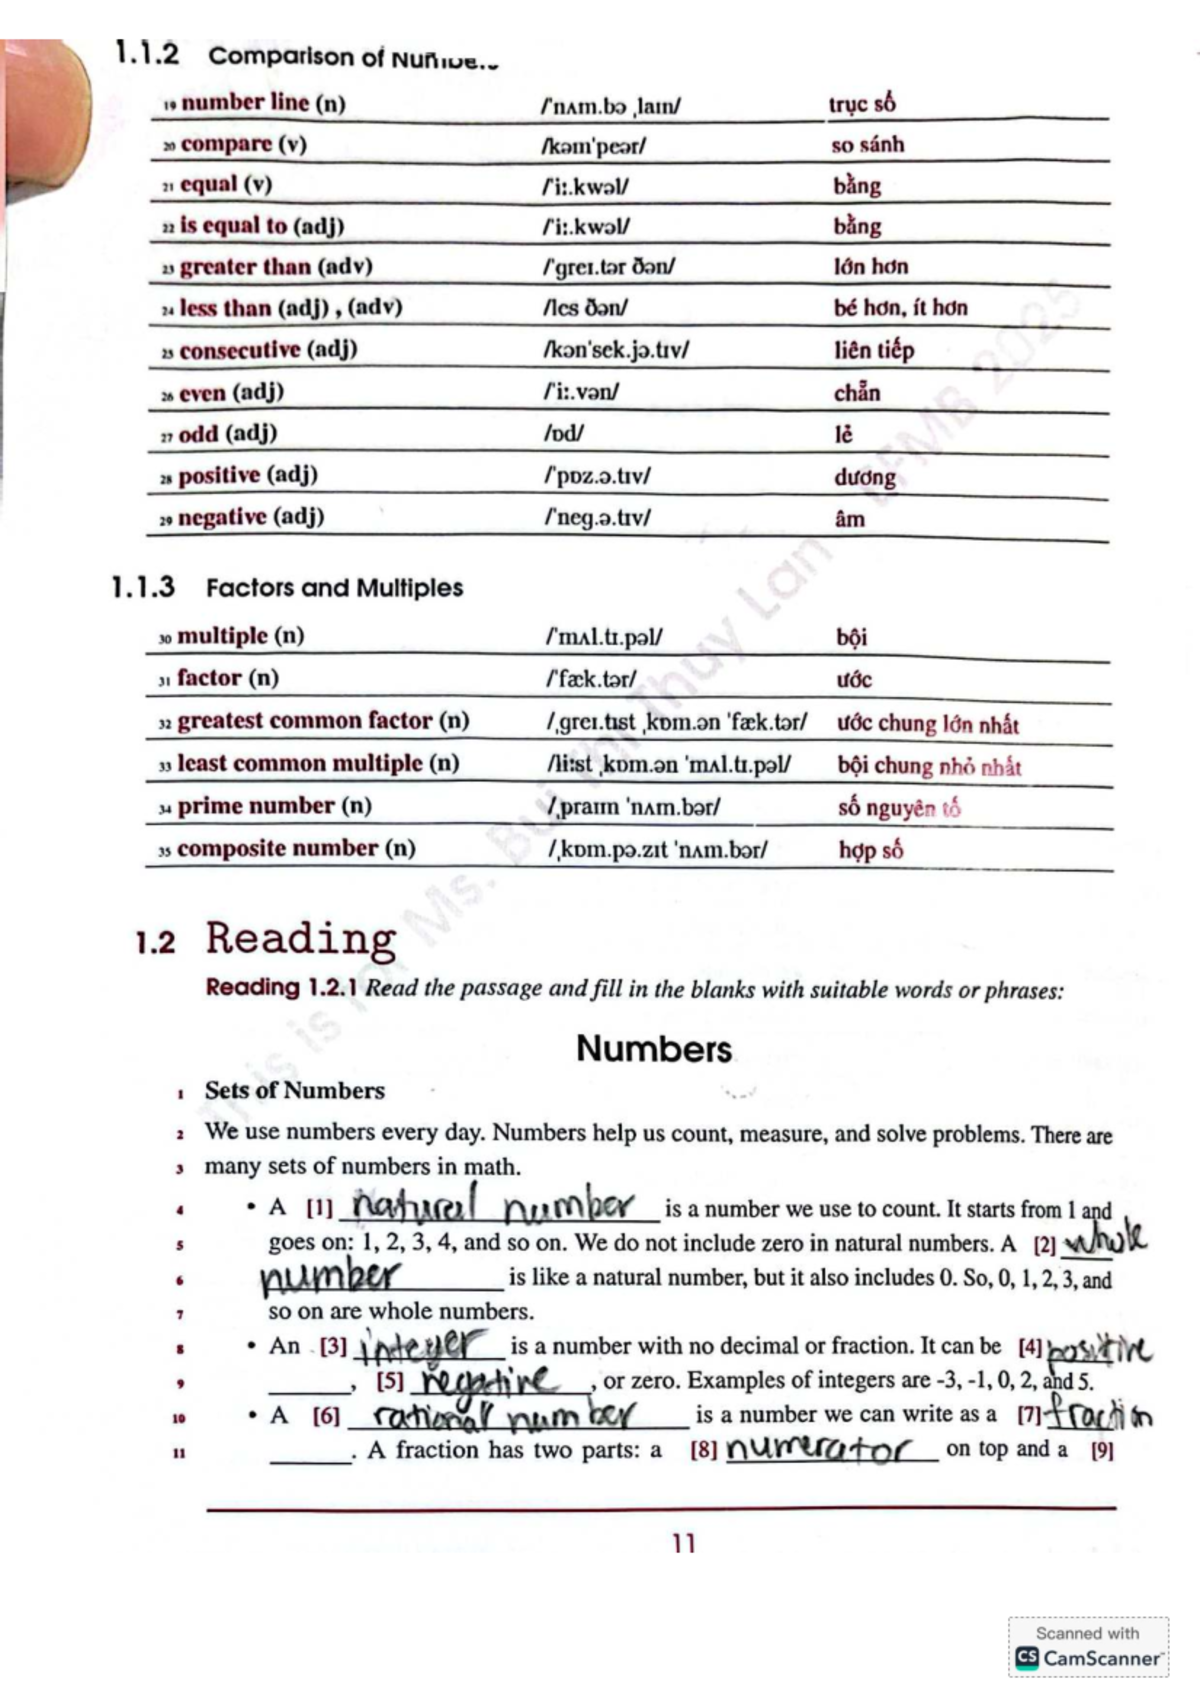 1.1.2 Comparison of
19 number line (n) /ˈnʌm.bə ˌlaɪn/ trục số
20 compare (v) /kəmˈpeər/ so sánh
21 equal (v) /ˈiː.kwəl/ bằng
22 is equal to (adj) /ˈiː.kwəl/ bằng
23 greater than (adv) /ˈgreɪ.tər ðən/ lớn hơn
24 less than (adj) , (adv) /les ðən/ bé hơn, ít hơn
25 consecutive (adj) /kənˈsek.jə.tɪv/ liên tiếp
26 even (adj) /ˈiː.vən/ chẵn
27 odd (adj) /ɒd/ lẻ
28 positive (adj) /ˈpɒz.ə.tɪv/ dương
29 negative (adj) /ˈneg.ə.tɪv/ âm
1.1.3 Factors and Multiples
30 multiple (n) /ˈmʌl.tɪ.pəl/ bội
31 factor (n) /ˈfæk.tər/ ước
32 greatest common factor (n) /ˌgreɪ.tɪst ˌkɒm.ən ˈfæk.tər/ ước chung lớn nhất
33 least common multiple (n) /liːst ˌkɒm.ən ˈmʌl.tɪ.pəl/ bội chung nhỏ nhất
34 prime number (n) /ˌpraɪm ˈnʌm.bər/ số nguyên tố
35 composite number (n) /ˌkɒm.pə.zɪt ˈnʌm.bər/ hợp số
This is for Ms. Bui Thi Thuy Lan EFMB 2025
1.2 Reading
Reading 1.2.1 Read the passage and fill in the blanks with suitable words or phrases:
Numbers
1 Sets of Numbers
2 We use numbers every day. Numbers help us count, measure, and solve problems. There are
3 many sets of numbers in math.
4 • A [1] natural number is a number we use to count. It starts from 1 and
5 goes on: 1, 2, 3, 4, and so on. We do not include zero in natural numbers. A [2] whole
6 number is like a natural number, but it also includes 0. So, 0, 1, 2, 3, and
7 so on are whole numbers.
8 • An [3] integer is a number with no decimal or fraction. It can be [4] positive
9 ______, [5] negative, or zero. Examples of integers are -3, -1, 0, 2, and 5.
10 • A [6] rational number is a number we can write as a [7] fraction
11 ______. A fraction has two parts: a [8] numerator on top and a [9]
11
Scanned with
CS CamScanner